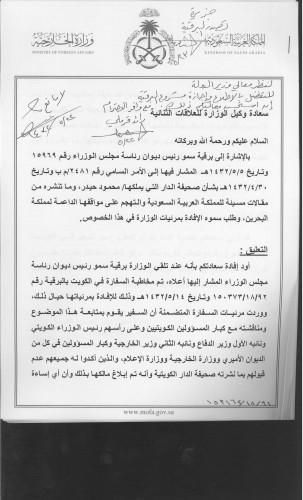 المملكة العربية السعودية
KINGDOM OF SAUDI ARABIA
وزارة الخارجية
MINISTRY OF FOREIGN AFFAIRS
سعادة وكيل الوزارة للعلاقات الثنائية
السلام عليكم ورحمة الله وبركاته
بالإشارة إلى برقية سمو رئيس ديوان رئاسة مجلس الوزراء رقم ١٥٩٦٩
وتاريخ ١٤٣٢/٥/٥هـ المشار فيها إلى الأمر السامي رقم ٢٤٨١/م ب وتاريخ
١٤٣٢/٤/٣٠هـ بشأن صحيفة الدار التي يملكها/ محمود حيدر، وما تنشره من
مقالات مسيئة للمملكة العربية السعودية والتهجم على مواقفها الداعمة لمملكة
البحرين، وطلب سموه الإفادة بمرئيات الوزارة في هذا الخصوص.
التعليق :
أود إفادة سعادتكم بأنه عند تلقي الوزارة برقية سمو رئيس ديوان رئاسة
مجلس الوزراء المشار إليها أعلاه، تم مخاطبة السفارة في الكويت بالبرقية رقم
١٥٠٣٧٣/١٨/٩٢ وتاريخ ١٤٣٢/٥/١٤هـ وذلك للإفادة بمرئياتها حيال ذلك،
ووردت مرئيات السفارة المتضمنة أن السفير يقوم بمتابعة هذا الموضوع
ومناقشته مع كبار المسؤولين الكويتيين وعلى رأسهم رئيس الوزراء الكويتي
ونائبه الأول وزير الدفاع ونائبه الثاني وزير الخارجية وكبار المسؤولين في كل من
الديوان الأميري ووزارة الخارجية ووزارة الإعلام، والذين أكدوا له جميعهم عدم
قبولهم بما نشرته صحيفة الدار الكويتية وأنه تم إبلاغ مالكها بذلك وأن أي إساءة
www.mofa.gov.sa